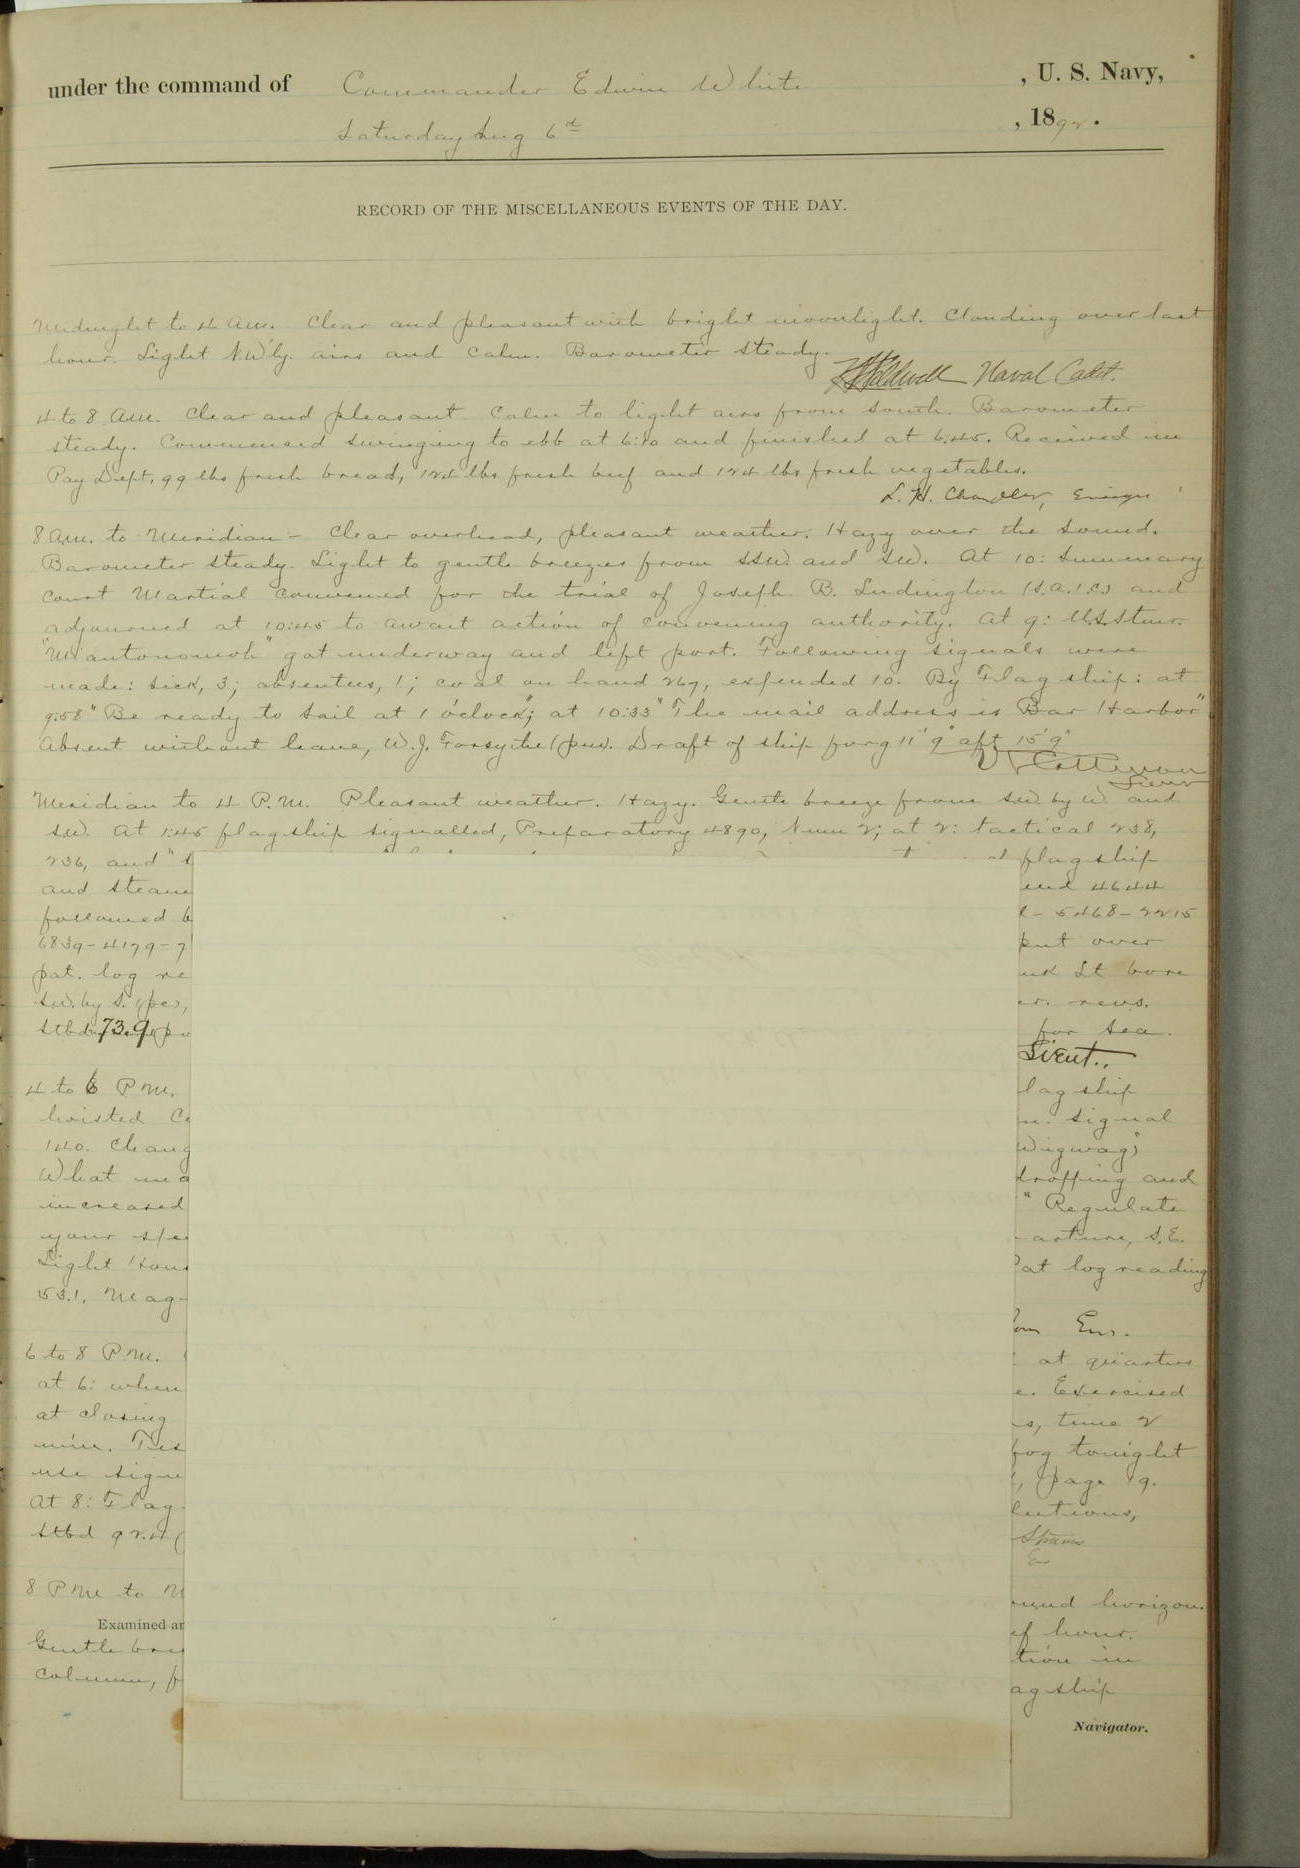 under the command of Commander Edwin White , U. S. Navy,
Saturday Aug 6th , 1892.
RECORD OF THE MISCELLANEOUS EVENTS OF THE DAY.
Midnight to 4 A.M. Clear and pleasant with bright moonlight. Clouding over last
hour. Light N.W'ly. airs and calm. Barometer steady.
Naval Cadet.
4 to 8 A.M. Clear and pleasant. Calm to light airs from South. Barometer
steady. Commenced swinging to ebb at 6:10 and finished at 6:45. Received in
Pay Dept. 99 lbs fresh bread, 124 lbs fresh beef and 124 lbs fresh vegetables.
L. H. Chandler, Ensign
8 A.M. to Meridian - Clear overhead, pleasant weather. Hazy over the Sound.
Barometer steady. Light to gentle breezes from SSW and SW. At 10: Summary
Court Martial convened for the trial of Joseph B. Ludington (S.A.1.C.) and
adjourned at 10:45 to await action of convening authority. At 9: U.S. Stmr.
"Miantonomoh" got underway and left port. Following signals were
made: Sick, 3; absentees, 1; coal on hand 267, expended 10. By Flag ship: at
9:58 "Be ready to sail at 1 o'clock"; at 10:33 "The mail address is Bar Harbor"
Absent without leave, W.J. Forsythe Draft of ship forg 11' 9" aft 15' 9"
Lieut
Meridian to 4 P.M. Pleasant weather. Hazy. Gentle breeze from SW. by W. and
SW. At 1:45 flag ship signalled, Preparatory 4890, Num 2; at 2: tactical 238,
236, and flag ship
and 4644
followed 5468-2215
6839-4179-7 put over
pat. log Lt bore
SW. by S. (pc), revs.
Stbd. 73.9 for sea.
Lieut.
4 to 6 P.M. flag ship
hoisted signal
140. (Wigwag)
What dropping and
increased "Regulate
your S.E.
Light Pat log reading
53.1. Mag-
Ens.
6 to 8 P.M. at quarters
at 6: when Exercised
at closing time 2
min. fog tonight
use page 19.
At 8: Flag
Stbd 92.4
8 P.M. to horizon.
Examined an
Gentle hour.
column, in
ship
Navigator.